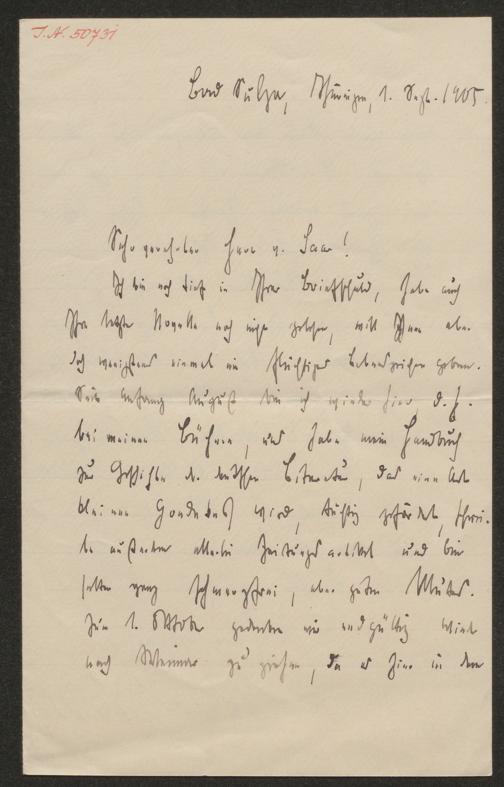 I.N. 50731
Bad Sulza, Thüringen, 1. Sept. 1905.
Sehr verehrter Herr v. Saar!
Ich bin noch tief in Ihrer Briefschuld, habe auch
Ihre letzte Novelle noch nicht gelesen, will Ihnen aber
doch wenigstens einmal ein flüchtiges Lebenszeichen geben.
Seit Anfang August bin ich wieder hier, d. h.
bei meinen Büchern, und habe mein Handbuch
zur Geschichte der deutschen Literatur, das eine Art
kleiner Goedeke wird, tüchtig gefördert, schrei-
be außerdem allerlei Zeitungsartikel und bin
selten ganz schmerzfrei, aber guten Mutes.
Zum 1. Oktober gedenken wir endgültig wieder
nach Weimar zu ziehen, da es hier in dem